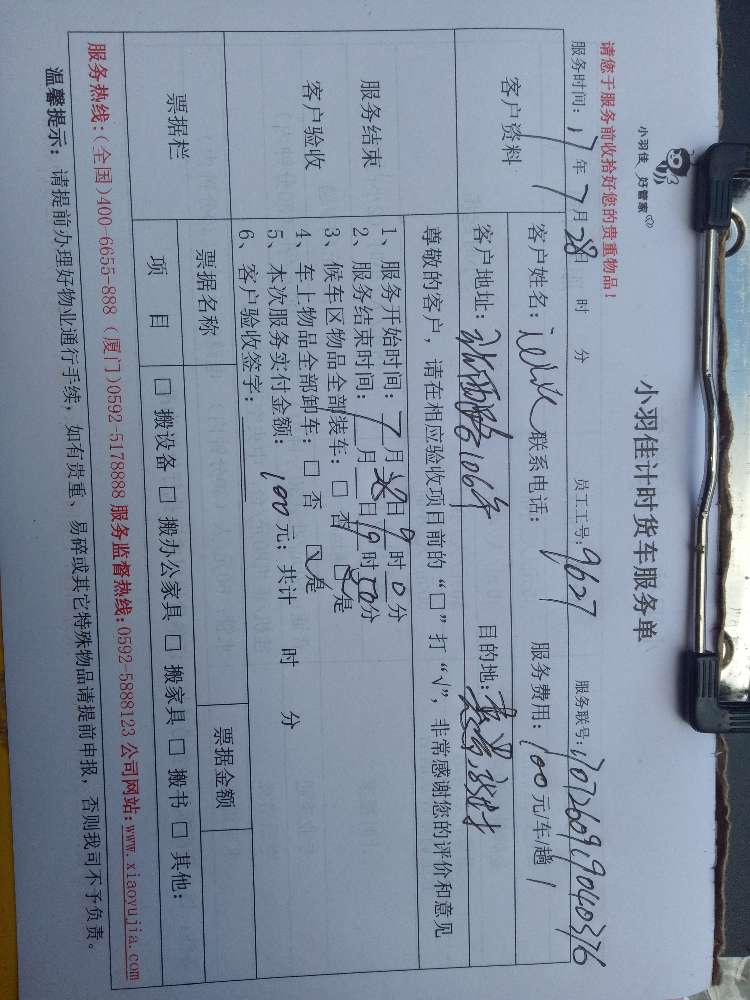 小羽佳 好管家
小羽佳计时货车服务单
请您于服务前收拾好您的贵重物品！
服务时间：17年7月28日 时 分 员工工号：9627 服务联号：
客户资料
客户姓名： 联系电话： 服务费用：100元/车/趟
客户地址： 目的地：
尊敬的客户，请在相应验收项目前的“□”打“√”，非常感谢您的评价和意见
服务结束
客户验收
1、服务开始时间：7月28日9时0分
2、服务结束时间：月 日 时 分
3、候车区物品全部装车：□ 否 □ 是
4、车上物品全部卸车：□ 否 □ 是
5、本次服务实付金额：100元；共计 时 分
6、客户验收签字：
票据栏
票据名称 票据金额
项 目 □ 搬设备 □ 搬办公家具 □ 搬家具 □ 搬书 □ 其他：
服务热线：(全国)400-6655-888 (厦门)0592-5178888 服务监督热线：0592-5888123 公司网站：www.xiaoyujia.com
温馨提示：请提前办理好物业通行手续，如有贵重、易碎或其它特殊物品请提前申报，否则我司不予负责。